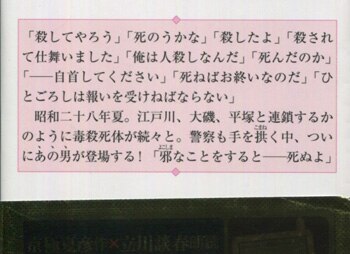 「殺してやろう」「死のうかな」「殺したよ」「殺され
て仕舞いました」「俺は人殺しなんだ」「死んだのか」
「――自首してください」「死ねばお終いなのだ」「ひ
とごろしは報いを受けねばならない」
昭和二十八年夏。江戸川、大磯、平塚と連鎖するか
のように毒殺死体が続々と。警察も手を拱く中、つい
にあの男が登場する!「邪なことをすると――死ぬよ」
京極夏彦作×立川談春